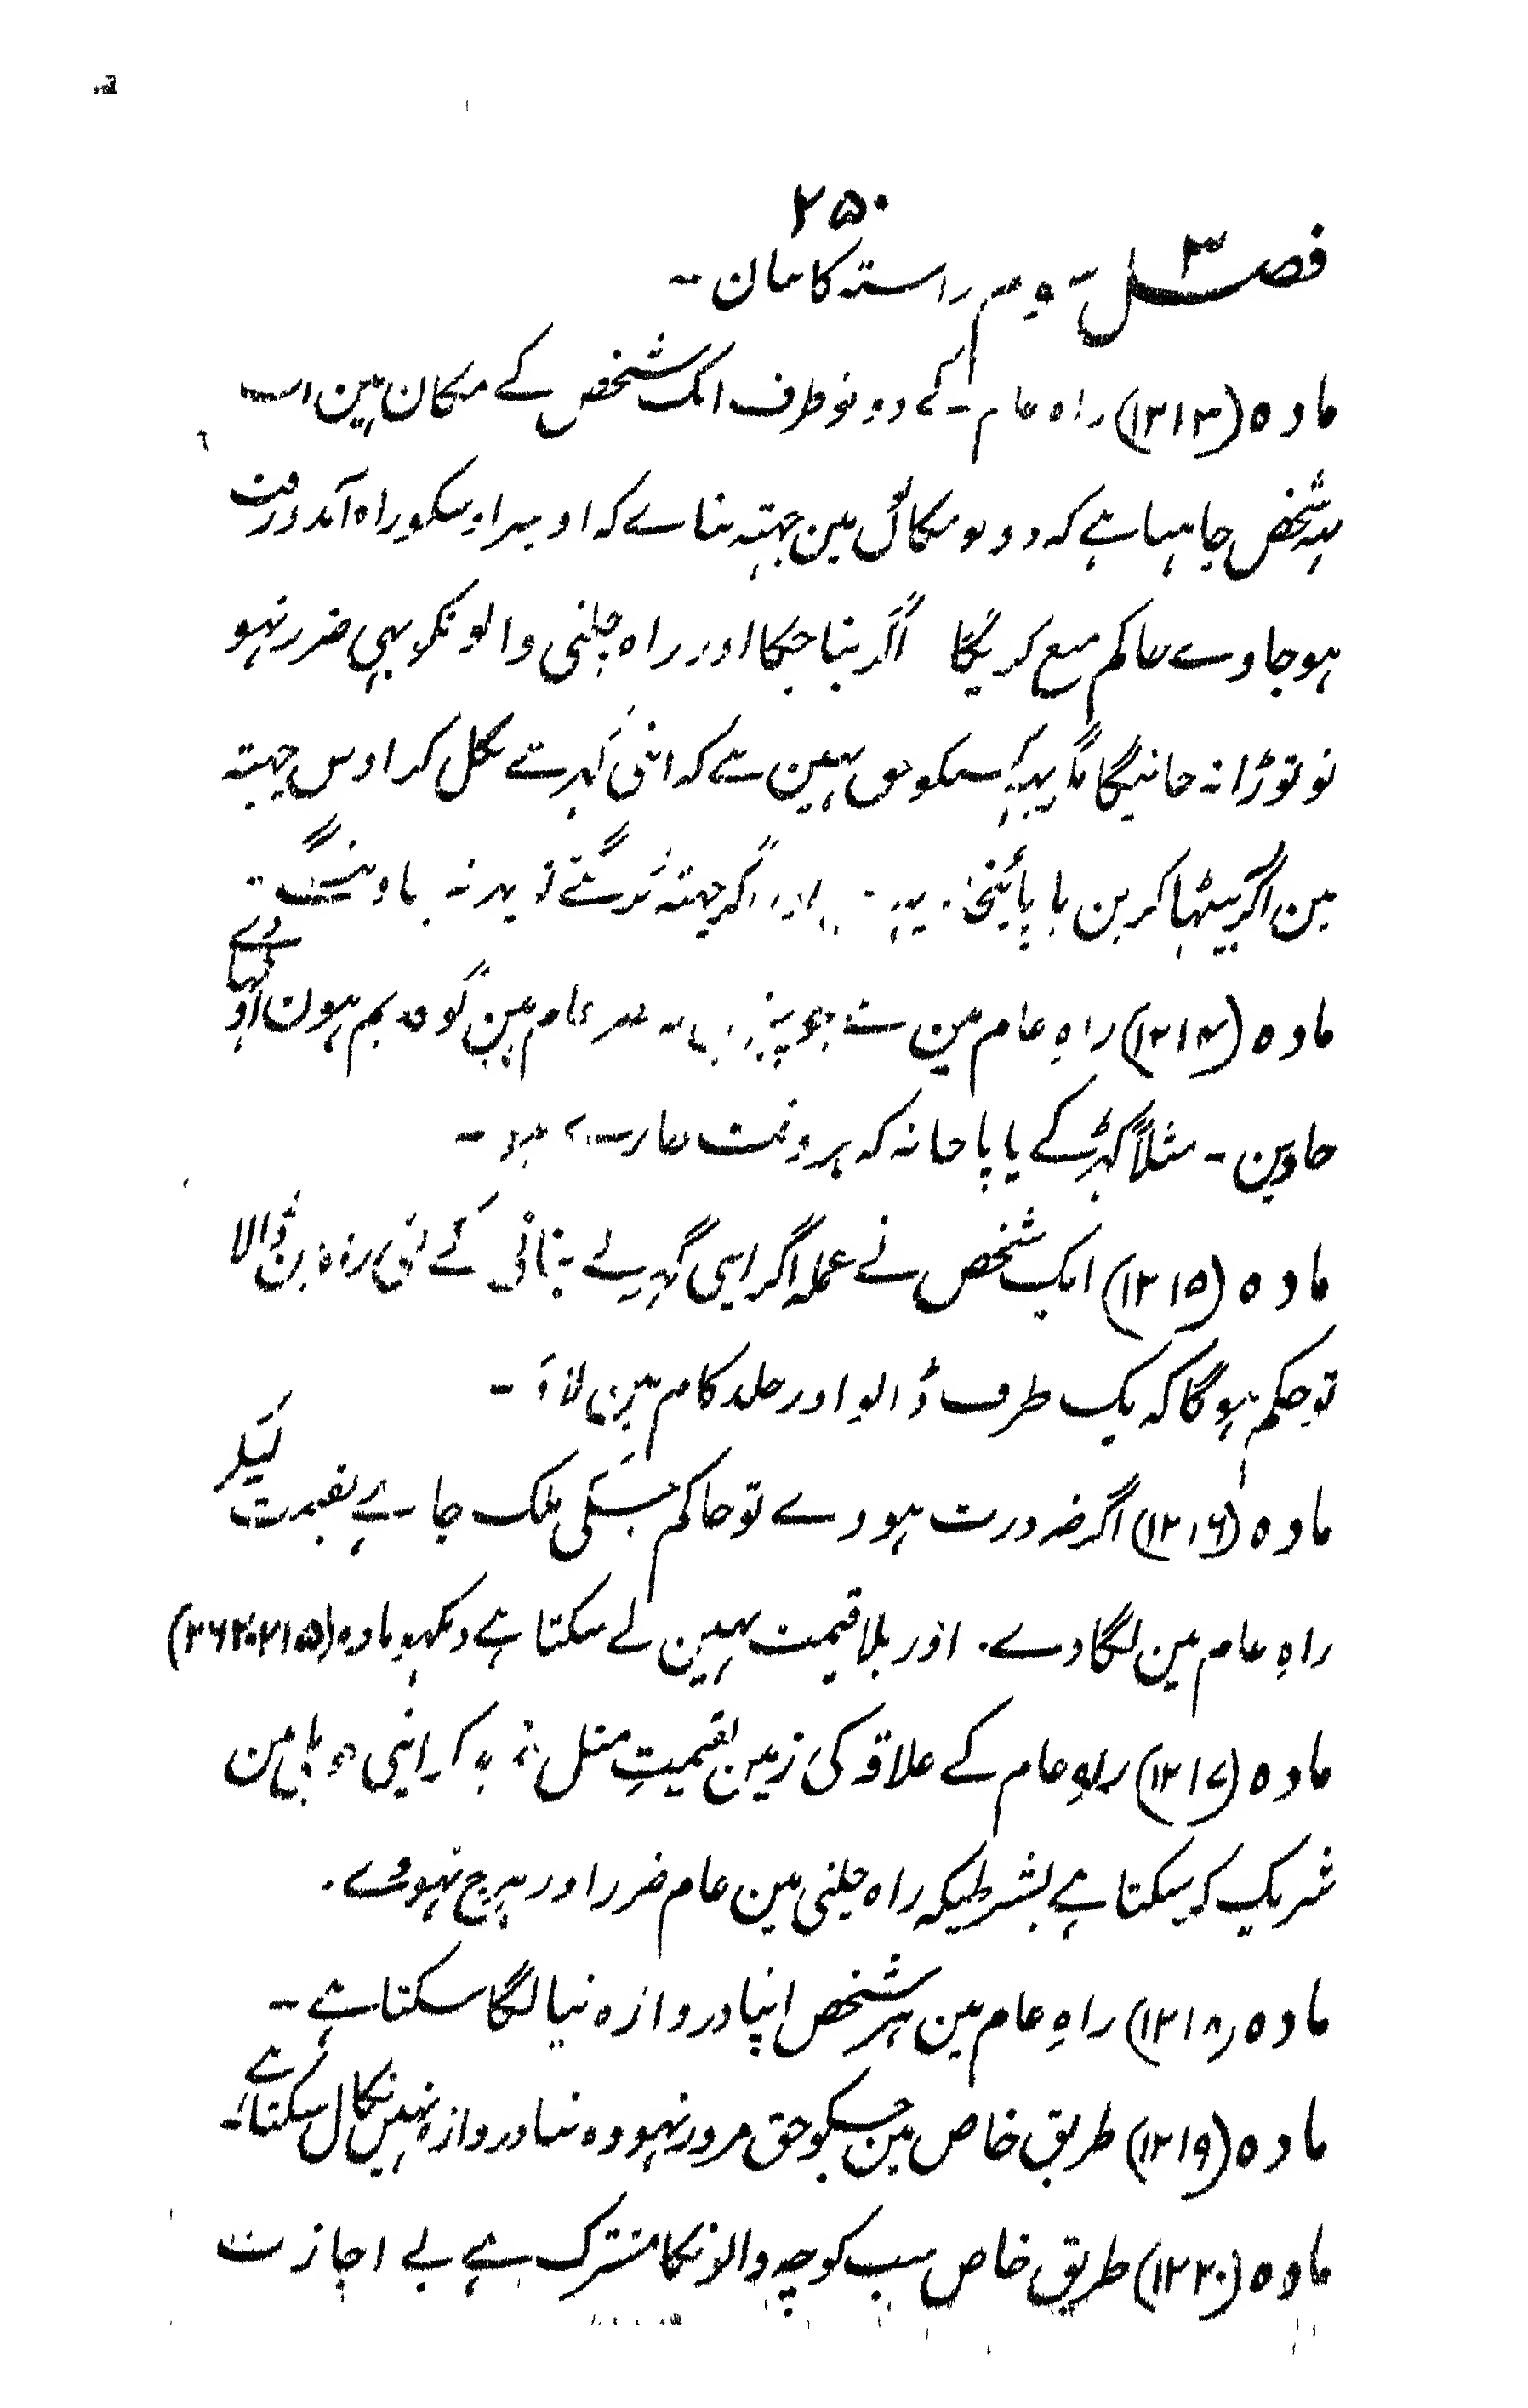 ۲۵۰
فصل سوم راستہ کا بیان ۔
مادہ (۱۲۱۳) راہ عام ۔ کے دونو طرف ایک شخص کے مکان ہین اب
یہ شخص چاہتا ہے کہ دونو مکانون مین چہتہ بناے کہ اوپر اوسکو راہ آمدورفت
ہو جاوے حاکم منع کریگا اگر بنا چکا اور راہ چلنی والونکو بہی ضرر نہو
تو توڑا نہ جائیگا مگر یہ کہ اسکو حق نہین ہے کہ اپنی گہر سے نکل کر اوس چہتہ
مین اگر بیٹہا کرین یا اور اگر چہتہ نہ
مادہ (۱۲۱۴) راہِ عام مین سے جو عام ہین گو قدیم ہون اوٹہا دے
جاوین ۔ مثلاً کہڑکے یا پاخانہ کہ ہر وقت
مادہ (۱۲۱۵) ایک شخص نے عملہ اگر اپنی گہر کے بنانی کے لئی راہ مین ڈالا
تو حکم ہوگا کہ یک طرف ڈالو اور جلد کام مین لاؤ ۔
مادہ (۱۲۱۶) اگر ضرورت ہووے تو حاکم جسکی ملک چاہے بقیمت لیکر
راہِ عام مین لگا دے ۔ اور بلا قیمت نہین لے سکتا ہے دیکہو مادہ (۲۱۵ ، ۲۶۲)
مادہ (۱۲۱۷) راہِ عام کے علاقہ کی زمین بقیمتِ مثل خرید کر اپنی حویلی مین
شریک کر سکتا ہے بشرطیکہ راہ چلنی مین عام ضرر اور ہرج نہووے ۔
مادہ (۱۲۱۸) راہِ عام مین ہر شخص اپنا دروازہ نیا لگا سکتا ہے ۔
مادہ (۱۲۱۹) طریق خاص مین جسکو حق مرور نہو وہ نیا دروازہ نہین نکال سکتا ہے ۔
مادہ (۱۲۲۰) طریق خاص سب کوچہ والونکا مشترک ہے بے اجازت